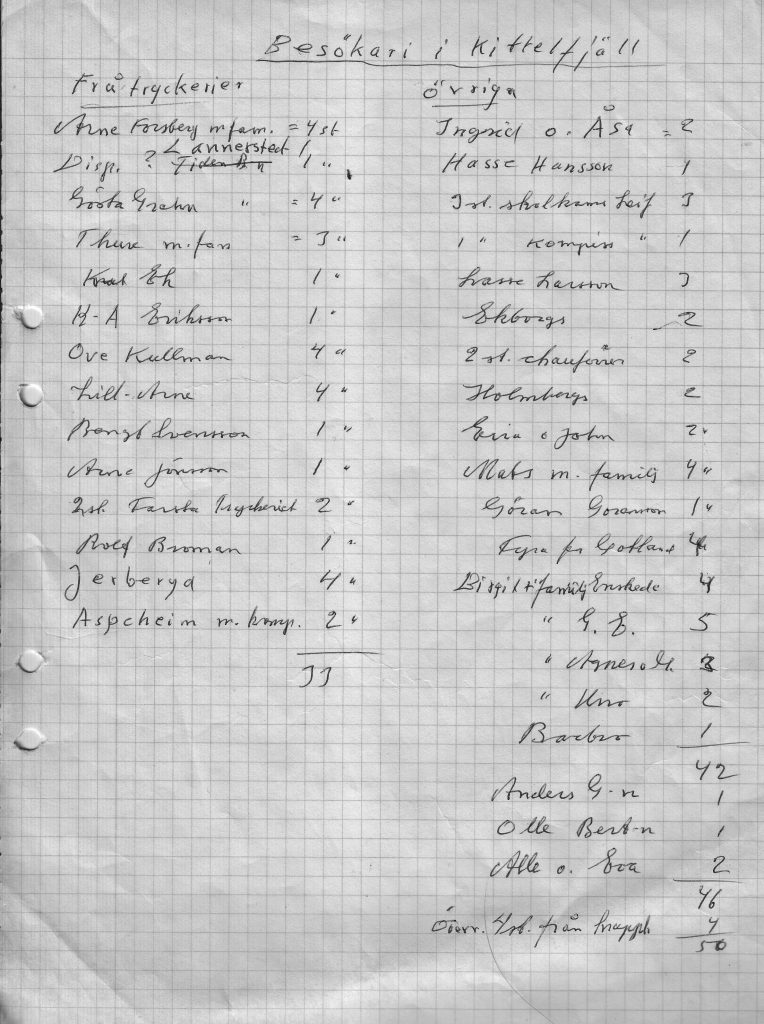 Besökari i Kittelfjäll
Frå tryckerier
Arne Forsberg m fam. = 4 st
Lannerstedt 1
Disp. ? 1 "
Gösta Grahn " = 4 "
Thure m. fam = 3 "
Knut Ek 1 "
K-A Eriksson 1 "
Ove Kullman 4 "
Lill-Arne 4 "
Bengt Svensson 1 "
Arne Jönsson 1 "
2 st. Farsta Tryckeriet 2 "
Rolf Broman 1 "
Jerberyd 4 "
Aspeheim m. komp. 2 "
33
Övriga
Ingrid o. Åsa = 2
Hasse Hansson 1
3 st. skolkam Leif 3
1 " kompiss " 1
Lasse Larsson 3
Ekborgs 2
2 st. chauförrer 2
Holmbergs 2
Eira o John 2 "
Mats m. familj 4 "
Göran Goransson 1 "
Fyra fr Gotland 4
Birgit + familj Enskede 4
" G. E. 5
" Agnes 3
" Uno 2
Barbro 1
42
Anders G-n 1
Olle Bert-n 1
Alle o. Eva 2
46
Överr. 4 st. från 4
50